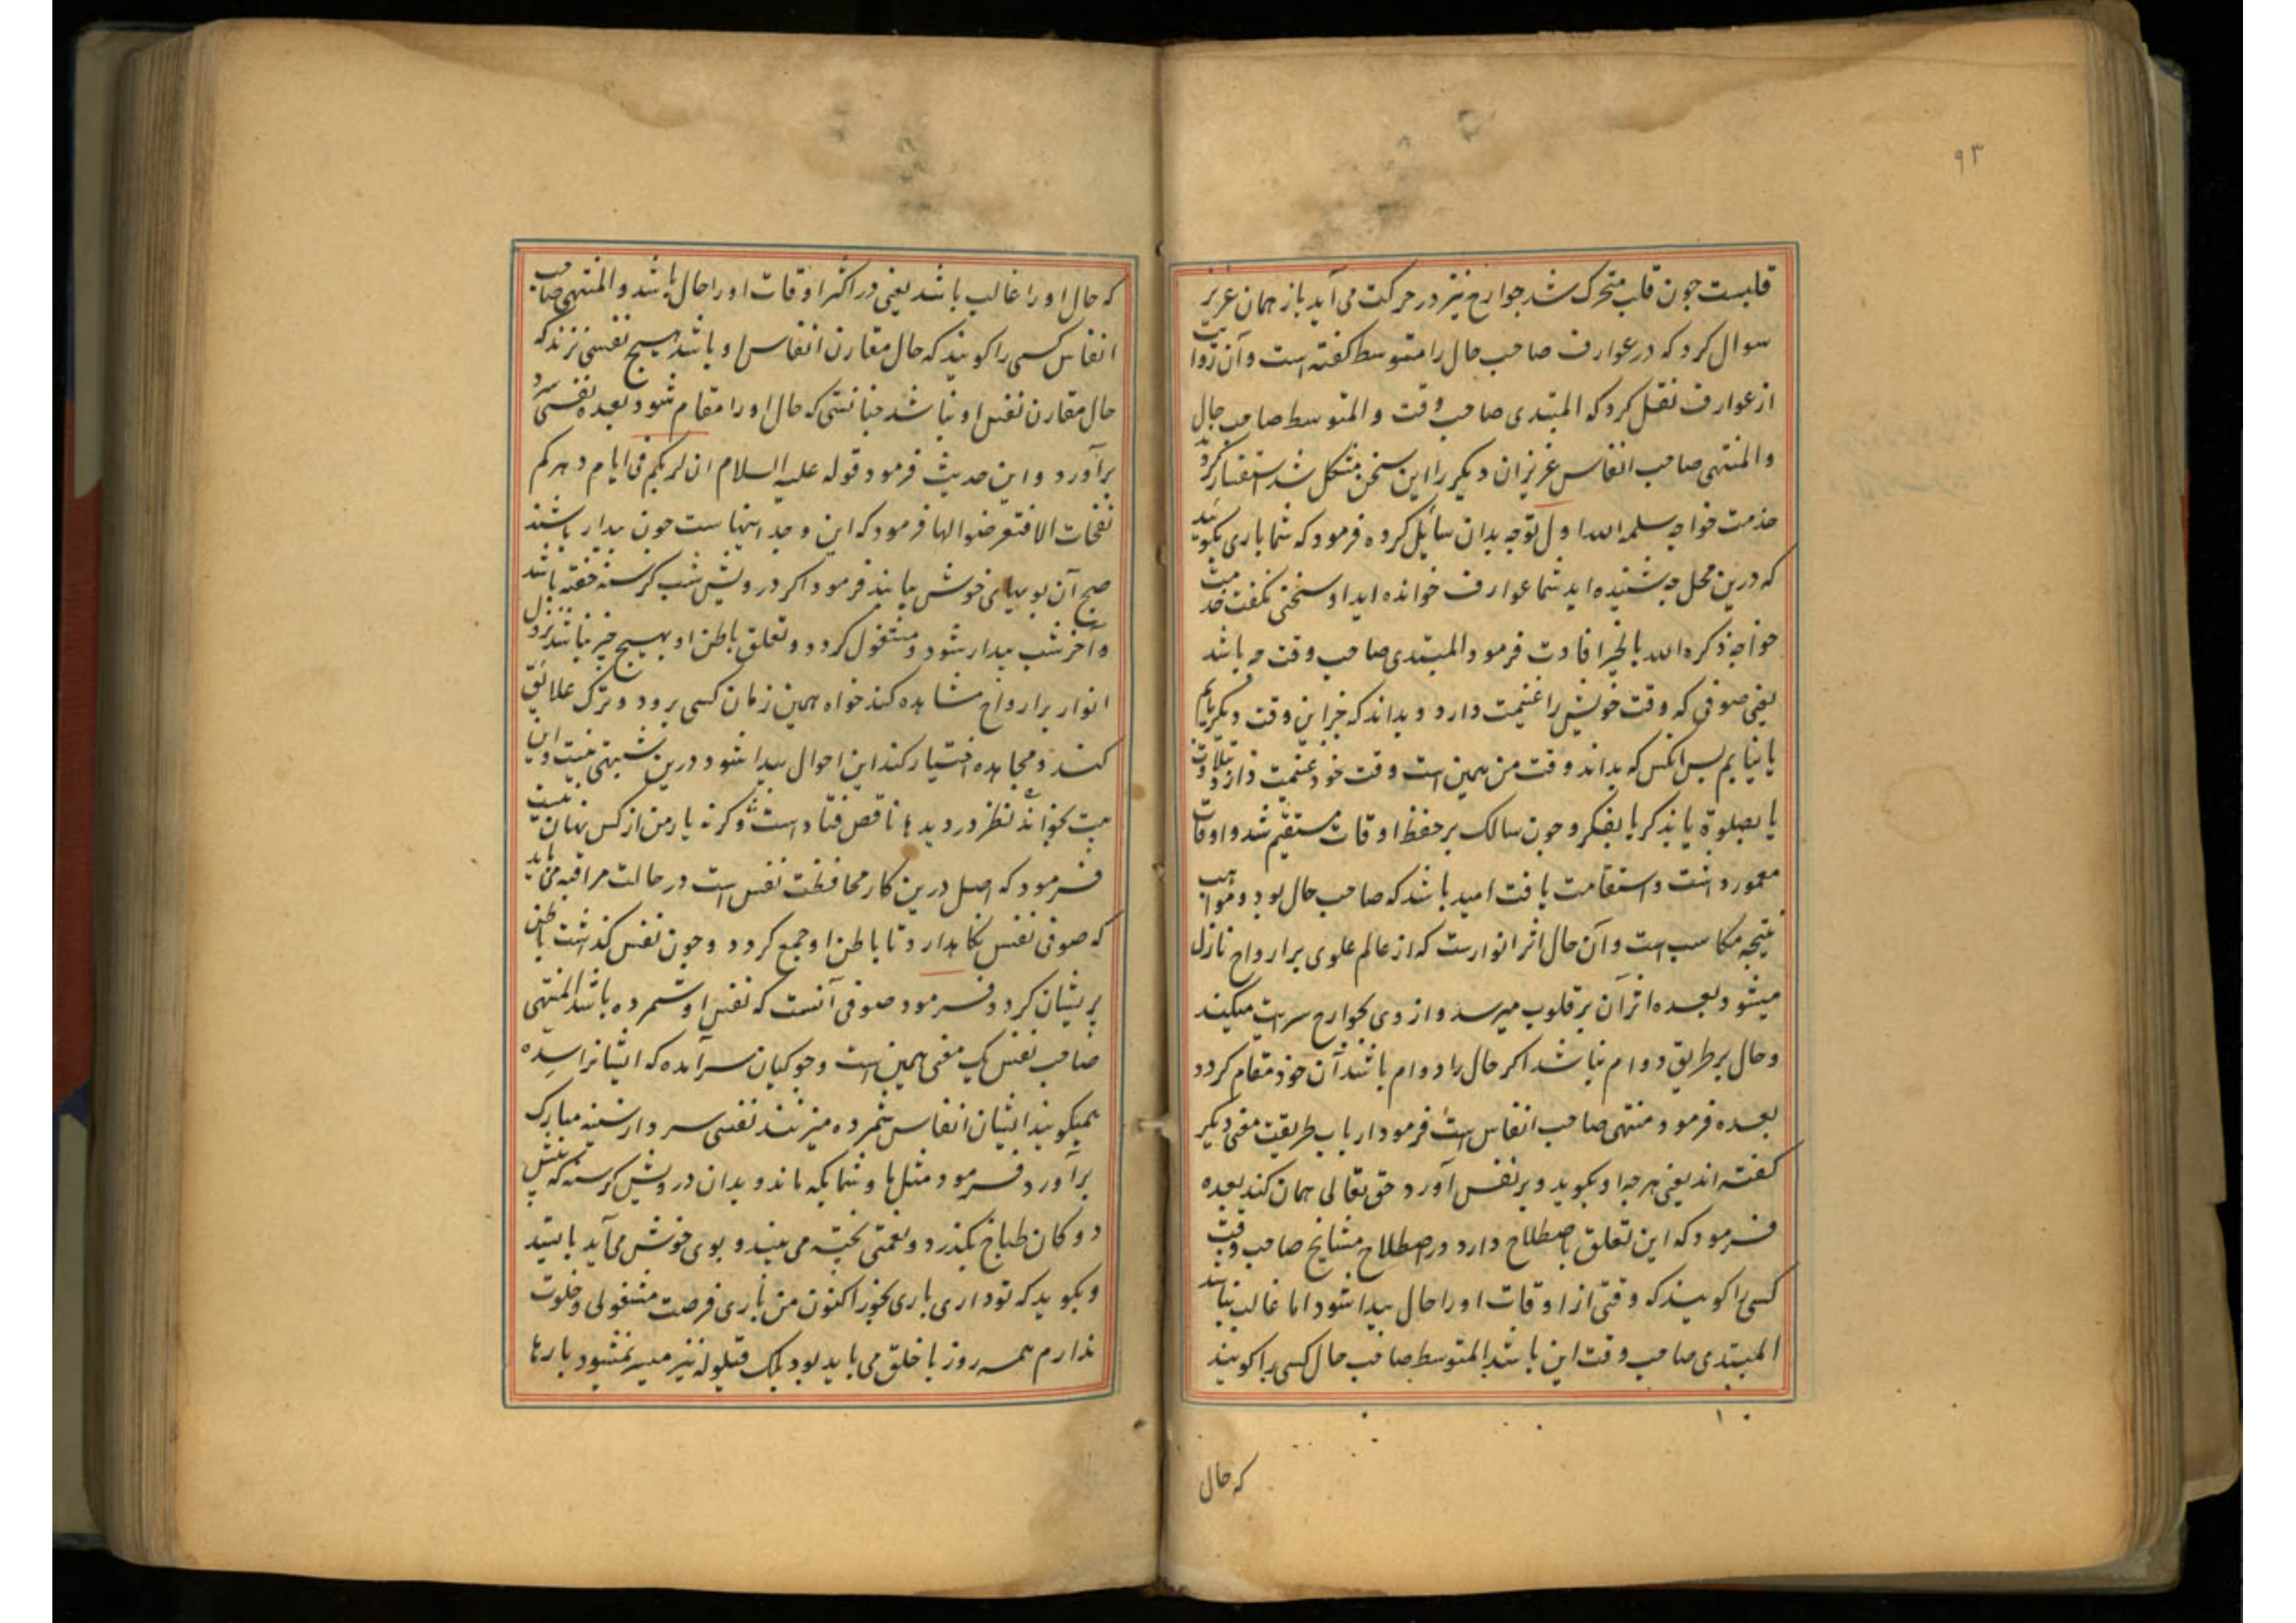 ۹۳
قلبست چون قلب متحرک شد جوارح نیز در حرکت می آید باز همان عزیز
سوال کرد که در عوارف صاحب حال را متوسط کفته است و آن روایت
از عوارف نقل کرد که المبتدی صاحب وقت و المتوسط صاحب حال
و المنتهی صاحب انفاس عزیزان دیکر را این سخن مشکل شد استفسار کردند
خدمت خواجه سلمه الله اول توجه بدان سایل کرده فرمود که شما باری بکوئید
که درین محل چه شنیده اید شما عوارف خوانده اید او سخنی نکفت خدمت
خواجه ذکره الله بالخیر افادت فرمود المبتدی صاحب وقت چه باشد
یعنی صوفی که وقت خویش را غنیمت دارد و بداند که جز این وقت دیکر یابم
یا نیابم پس آنکس که بداند وقت من همین است وقت خود غنیمت دارد بتلاوت
یا بصلوة یا بذکر یا بفکر و چون سالک بر حفظ اوقات مستقیم شد و اوقات
معمور داشت و استقامت یافت امید باشد که صاحب حال بود و مواهب
نتیجه مکاسب است و آن حال اثر انوارست که از عالم علوی بر ارواح نازل
میشود بعده اثر آن بر قلوب میرسد و از وی بجوارح سرایت میکند
و حال بر طریق دوام نباشد اکر حال را دوام باشد آن خود مقام کردد
بعده فرمود و منتهی صاحب انفاس است فرمود ارباب طریقت معنی دیکر
کفته اند یعنی هرچه او بکوید و بر نفس آورد حق تعالی همان کند بعده
فرمود که این تعلق باصطلاح دارد در اصطلاح مشایخ صاحب وقت
کسی را کویند که وقتی از اوقات او را حال پیدا شود اما غالب نباشد
المبتدی صاحب وقت این باشد المتوسط صاحب حال کسی را کویند
که حال
که حال او را غالب باشد یعنی در اکثر اوقات او را حال باشد و المنتهی صاحب
انفاس کسی را کویند که حال مقارن انفاس او باشد هیچ نفسی نزند که
حال مقارن نفس او نباشد چنانستی که حال او را مقام شود بعده نفسی سرد
برآورد و این حدیث فرمود قوله علیه السلام ان لربکم فی ایام دهرکم
نفحات الا فتعرضوا لها فرمود که این وجد اینهاست چون بیدار باشند
صبح آن بویهای خوش بیابند فرمود اکر درویش شب کرسنه خفته باشد
و آخر شب بیدار شود و مشغول کردد و تعلق باطن او بهیچ چیز نباشد نزول
انوار بر ارواح مشاهده کند خواه همین زمان کسی برود و ترک علائق
کند و مجاهده اختیار کند این احوال پیدا شود درین شبهتی نیست و این
بیت بخواند نظر در دیدها ناقص فتاد است و کرنه یار من از کس نهان نیست
فرمود که اصل درین کار محافظت نفس است در حالت مراقبه می باید
که صوفی نفس نکاهدارد تا باطن او جمع کردد و چون نفس کذاشت باطن
پریشان کردد فرمود صوفی آنست که نفس او شمرده باشد المنتهی
صاحب نفس یک معنی همین است و جوکیان سرآمده که ایشانرا سده
میکویند ایشان انفاس شمرده میزنند نفسی سرد از سینه مبارک
برآورد فرمود مثل ما و شما بکه ماند و بدان درویش کرسنه که پیش
دوکان طباخ بکذرد و نعمتی پخته می بیند و بوی خوش می آید بایستد
و بکوید که تو داری باری بخور اکنون من باری فرصت مشغولی و خلوت
ندارم همه روز با خلق می باید بود بلک قیلوله نیز میسر نمیشود بارها